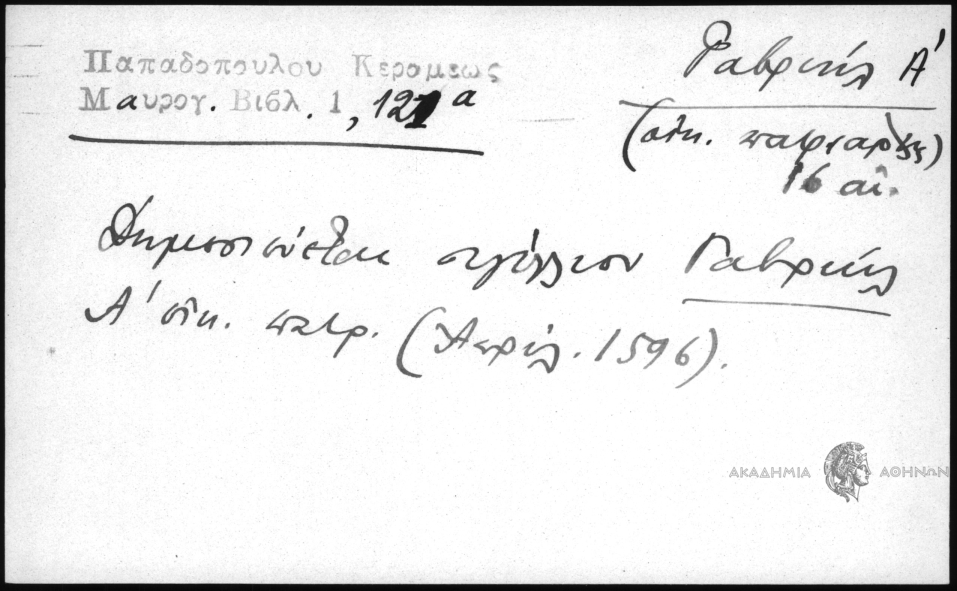 Παπαδοπουλου Κεραμεως
Μαυρογ. Βιβλ. 1, 121α
Γαβριήλ Α'
(οἰκ. πατριάρχης)
16 αἰ.
Δημοσιεύεται σιγίλλιον Γαβριήλ
Α' οἰκ. πατρ. (Ἀπρίλ. 1596).
ΑΚΑΔΗΜΙΑ ΑΘΗΝΩΝ